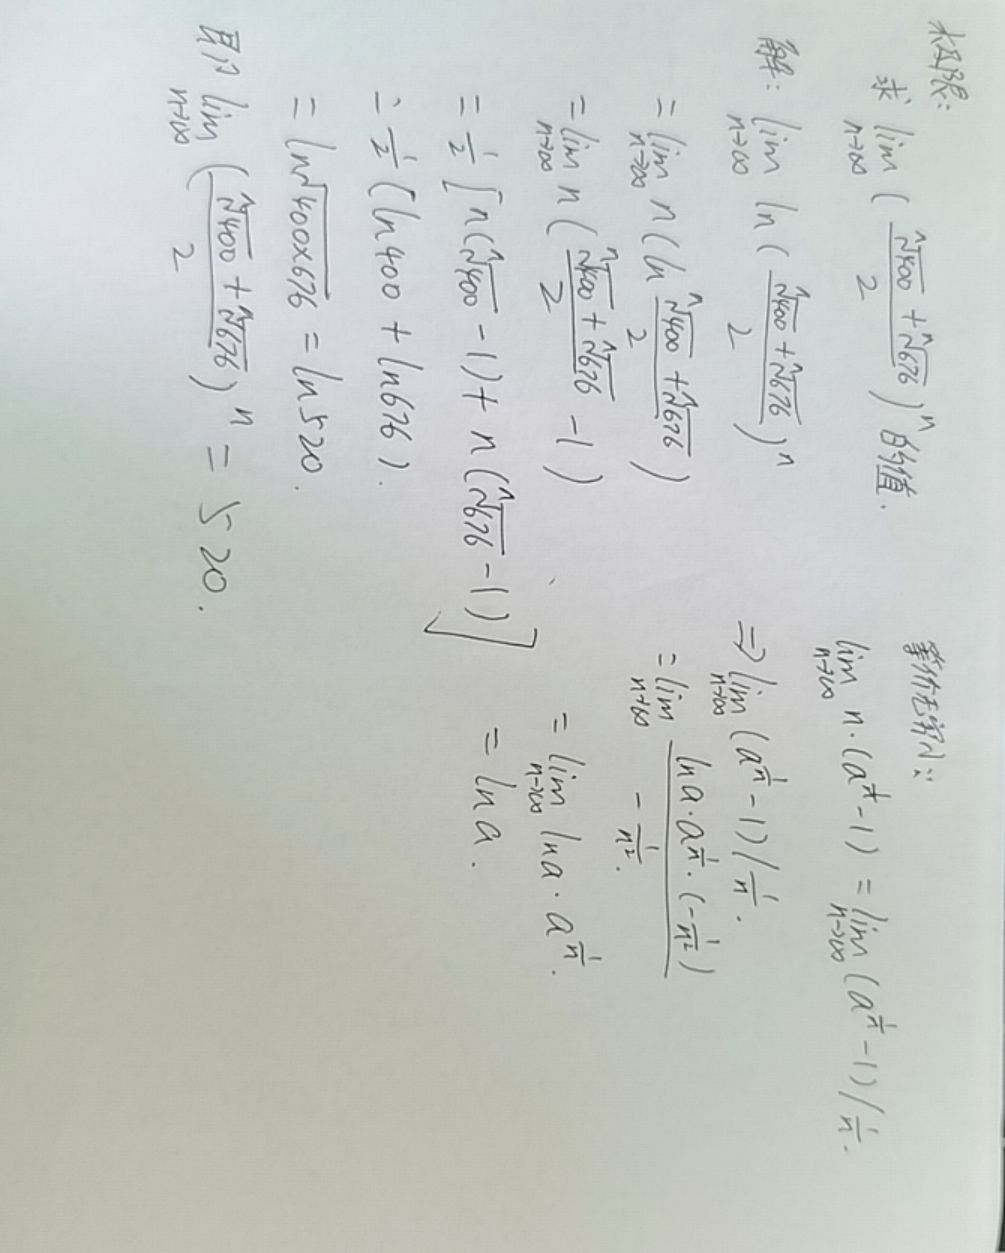 求极限:
求 lim n→∞ ( (ⁿ√400 + ⁿ√676) / 2 )ⁿ 的值.
解: lim n→∞ ln ( (ⁿ√400 + ⁿ√676) / 2 )ⁿ
= lim n→∞ n ( ln (ⁿ√400 + ⁿ√676) / 2 )
= lim n→∞ n ( (ⁿ√400 + ⁿ√676) / 2 - 1 )
= 1/2 [ n(ⁿ√400 - 1) + n(ⁿ√676 - 1) ]
= 1/2 (ln400 + ln676).
= ln√400×676 = ln520.
则 lim n→∞ ( (ⁿ√400 + ⁿ√676) / 2 )ⁿ = 520.
等价无穷小:
lim n→∞ n·(a^(1/n) - 1) = lim n→∞ (a^(1/n) - 1) / (1/n).
⇒ lim n→∞ (a^(1/n) - 1) / (1/n).
= lim n→∞ ( lna·a^(1/n)·(-1/n²) ) / ( -1/n² ).
= lim n→∞ lna·a^(1/n).
= lna.